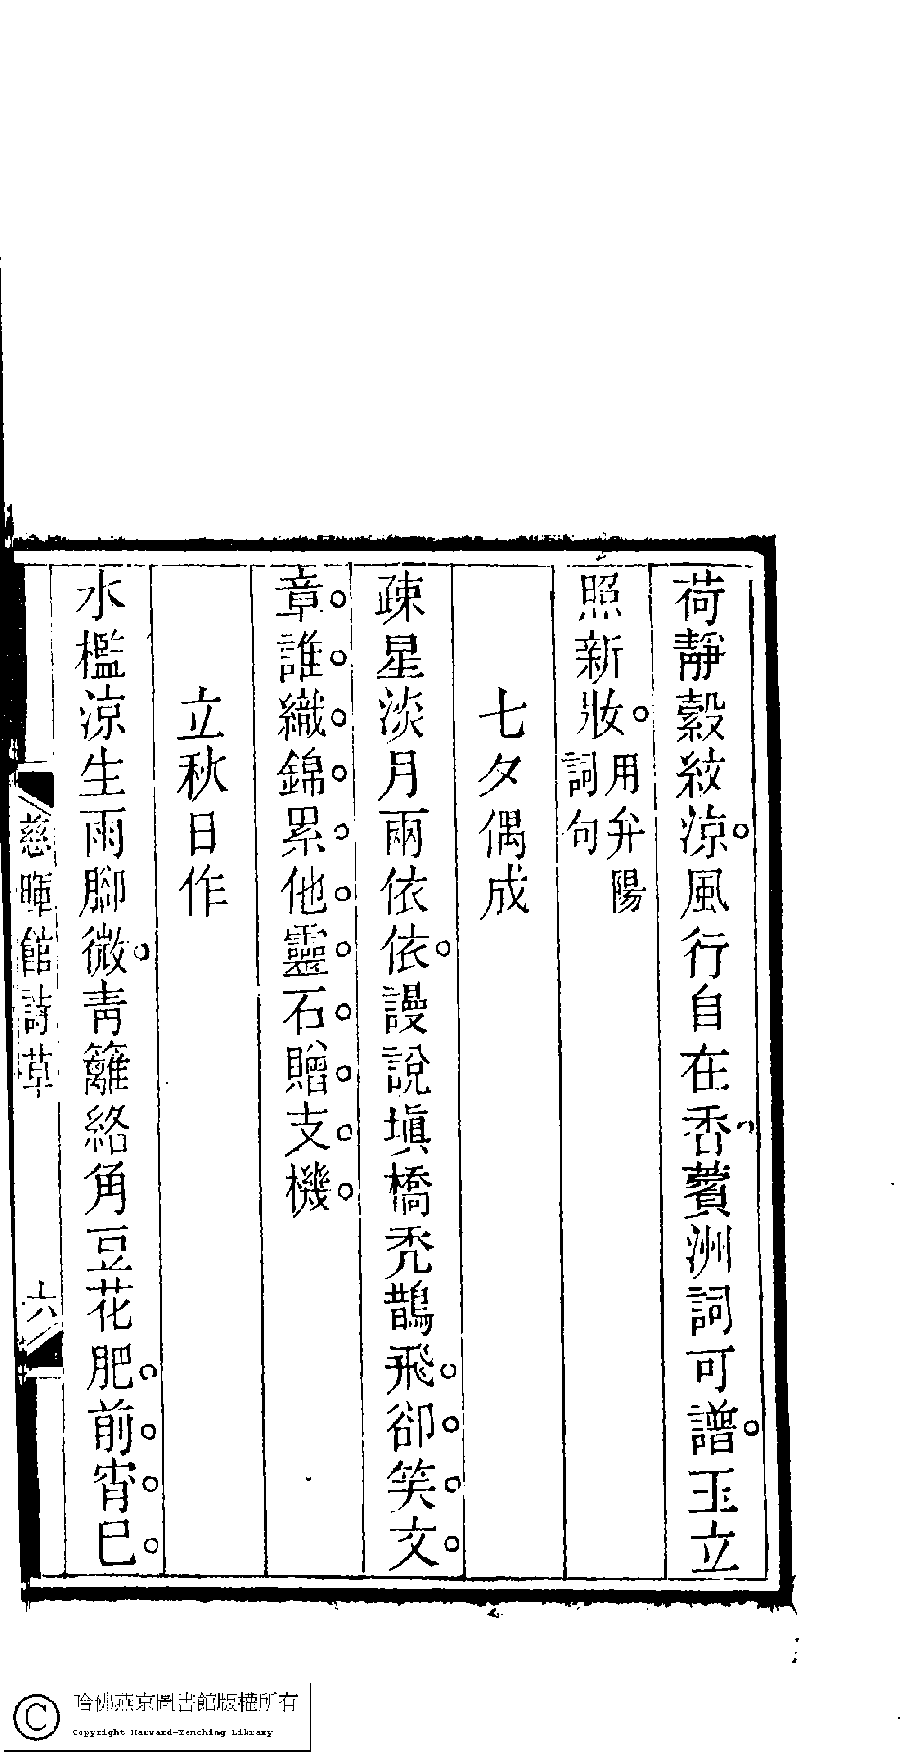 荷靜縠紋涼風行自在香薲洲詞可譜玉立
照新妝用弁陽詞句
七夕偶成
疎星淡月兩依依謾說塡橋禿鵲飛卻笑文
章誰織錦累他靈石贈支機
立秋日作
水檻涼生雨腳微靑籬絡角豆花肥前宵巳
慈暉館詩草
六
哈佛燕京圖書館版權所有
Copyright Harvard-Yenching Library